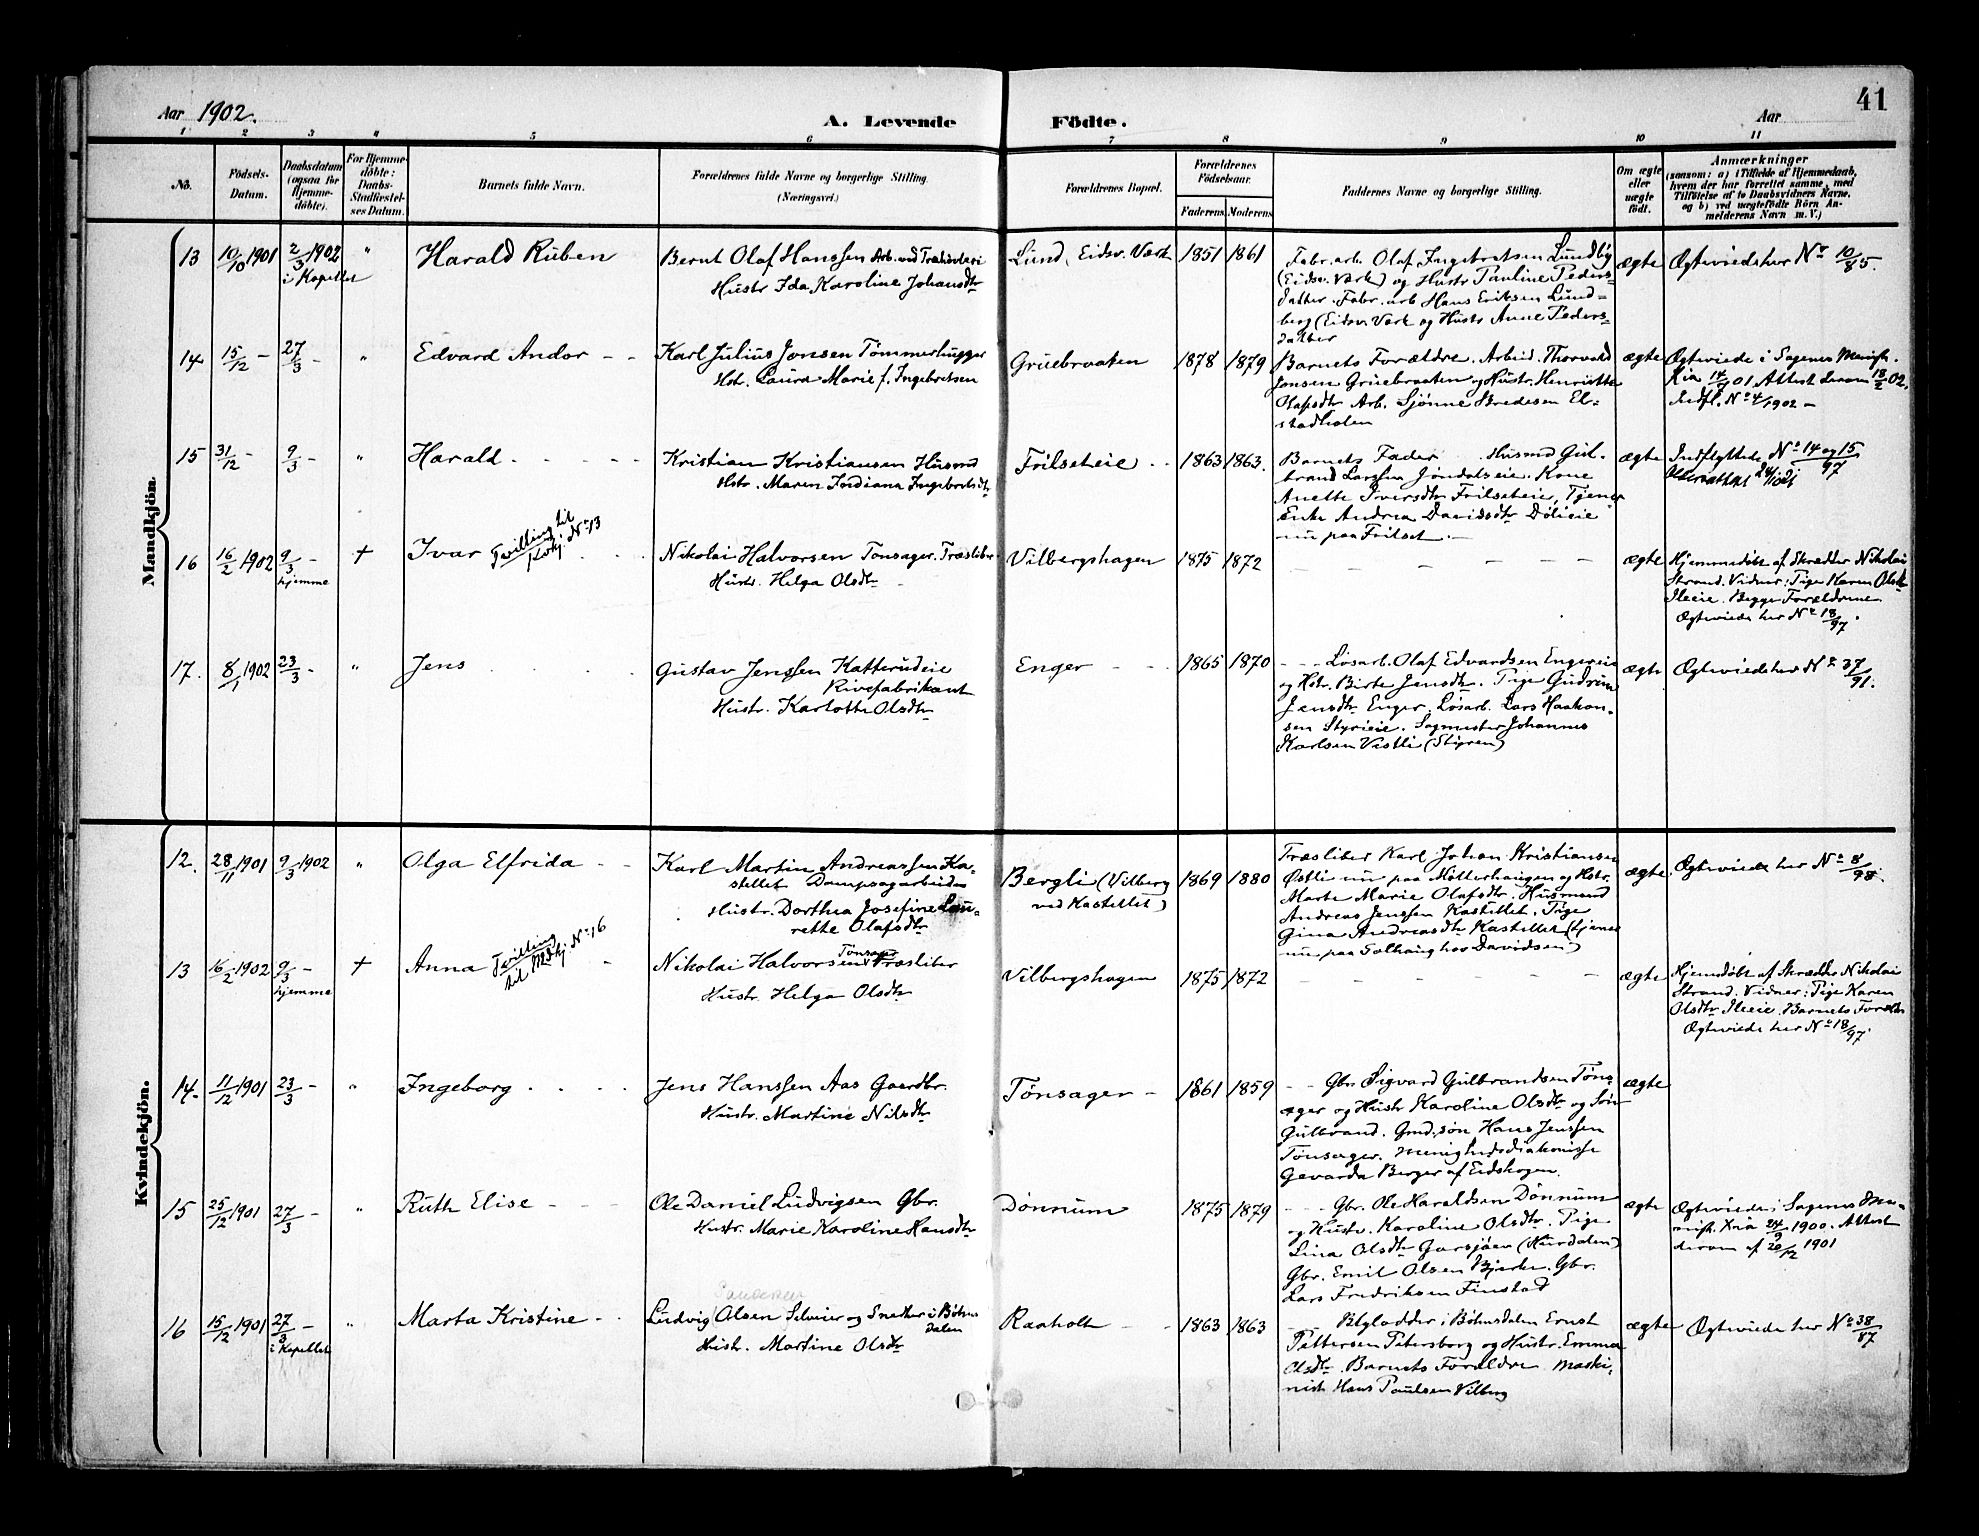 Aar 1902.
A. Levende Födte.
Aar
41
1 2 3 4 5 6 7 8 9 10 11
No.
Födsels-
Datum.
Daabsdatum
(ogsaa for
Hjemme-
döbte).
For Hjemme-
döbte:
Daabs-
Stadfæstel-
ses Datum.
Barnets fulde Navn.
Forældrenes fulde Navne og borgerlige Stilling.
(Næringsvei.)
Forældrenes Bopæl.
Forældrenes
Födselsaar.
Faderens Moderens
Faddernes Navne og borgerlige Stilling.
Om ægte
eller
uægte
födt.
Anmærkninger
(saasom: a) i Tilfælde af Hjemmedaab,
hvem der har forrettet samme, med
Tilföielse af to Daabsvidners Navne,
og b) ved uægtefödte Börn An-
melderens Navn m. V.)
Mandkjön.
13 10/10 1901 2/3 1902 " Harald Ruben
i Kapellet
Bernt Olaf Hanssen Arb. ved Træsliberi
Hustr Ida Karoline Johansdtr
Lund, Eidsv. Værk 1851 1861
Fabr. arb. Olaf Ingebretsen Lundby
(Eidsv. Værk) og Hustr Pauline Peders-
datter. Fabr. arb Hans Eriksen Lund-
berg (Eidsv. Værk og Hustr Anne Peders-
datter
ægte Ægteviede her No 10/85.
14 15/12 – 27/3 – " Edvard Andor – –
Karl Julius Jonsen Tømmerhugger
Hstr. Laura Marie f. Ingebretsen
Gruebraaten 1878 1879
Barnets Forældre. Arbeid. Thorvald
Jonsen Gruebraaten og Hustr. Henriette
Olafsdtr Arb. Sjønne Bredesen El-
stadholen
ægte Ægteviede i Sagenes Menigh.
Kia 14/ 01. Attest derom 18/2 02.
Indfl. No 4/1902 –
15 31/12 – 9/3 – " Harald – – –
Kristian Kristiansen Husmd
Hstr. Maren Jordiana Ingebretsdtr
Frilseteie – – 1863 1863.
Barnets Fader Husmd Gul-
brand Larssen Jøndalseie. Kone
Anette Iversdtr Frilseteie, Tjener
Enke Andrea Davidsdtr Dølieie
nu paa Frilset. –
ægte Indflyttede No 14 og 15/97
16 16/2 1902 9/3 – + Ivar Tvilling til
Kvkj. No 13
hjemme
Nikolai Halvorsen Tønsager. Træsliber
Hustr. Helga Olsdtr
Vilbergshagen 1875 1872 – – – – –
ægte Hjemmedøbt af Skrædder Nikolai
Strand. Vidner: Pige Karen Olsdtr
Ileeie. Begge Forældrene
Ægteviede her No 18/97.
17. 8/1 1902 23/3 – " Jens
Gustav Jenssen Katterudeie
Rivefabrikant
Hustr. Karlotte Olsdtr
Enger – – 1865 1870
– – Løsarb. Olaf Edvardsen Engereie
og Hstr. Birte Jensdtr. Pige Gudrun
Jensdtr Enger. Løsarb. Lars Haakon-
sen Styrieie. Sagmester Johannes
Karlsen Vestli (Styren)
ægte Ægteviede her No 37/91.
Kvindekjön.
12. 28/11 1901 9/3 1902 " Olga Elfrida – –
Karl Martin Andreassen Ka-
stellet Dampsagarbeider
Hustr. Dorthea Josefine Lau-
rette Olafsdtr
Bergli (Vilberg
ved Kastellet) 1869 1880
Træsliber Karl Johan Kristiansen
Østli nu paa Mitterhaugen og Hstr.
Marte Marie Olafsdtr. Husmand
Andreas Jenssen Kastellet. Pige
Gina Andreasdtr Kastellet (tjener
nu paa Solhaug hos Davidsen)
ægte. Ægteviede her No 8/98.
13 16/2 1902 9/3 – + Anna Tvilling
til Mdkj. No 16
hjemme
Nikolai Halvorsen Tønsager Træsliber
Hustr. Helga Olsdtr
Vilbergshagen 1875 1872 – – – – –
ægte Hjemdøbt af Skrædder Nikolai
Strand. Vidner: Pige Karen
Olsdtr Ileeie. Barnets Foræld.
Ægteviede her No 18/97.
14. 11/12 1901 23/3 – " Ingeborg – – –
Jens Hanssen Aas Gaardbr.
Hustr. Martine Nilsdtr
Tønsager – 1861 1859
– – Gbr. Sigvard Gulbrandsen Tøns-
ager og Hustr Karoline Olsdtr og Søn
Gulbrand. Gmd.søn Hans Jenssen
Tønsager. Menighedsdiakonisse
Gevarda Berger af Eidskogen.
ægte
15 25/12 1901 27/3 – " Ruth Elise – – –
Ole Daniel Ludvigsen Gbr.
Hustr. Marie Karoline Hansdtr
Dønnum 1875 1879
– – Gbr. Ole Haraldsen Dønnum
og Hustr. Karoline Olsdtr. Pige
Lina Olsdtr Garsjøen (Hurdalen)
Gbr. Emil Olsen Bjerke. Gbr.
Lars Fredriksen Finstad
ægte Ægteviede i Sagenes Me-
nigh. Kia 24/9 1900. Attest
derom af 20/12 1901
16 15/12 1901 27/3 – " Marta Kristine – –
i Kapellet
Ludvig Olsen Selveier og Snekker i Bøhns
dalen
Hustr. Martine Olsdtr
Raaholt – – 1863 1863
– – i Bøhnsdalen Ernst
Pettersen Petersborg og Hustr. Emma
Olsdtr. Barnets Forældre. Maski-
nist Hans Paulsen Vilberg
ægte Ægteviede her No 38/87